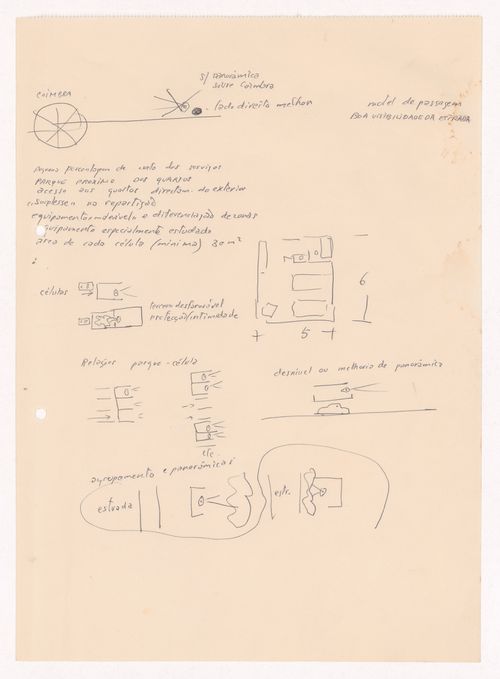 s/ panorâmica
sobre Coimbra
COIMBRA
lado direito melhor
motel de passagem
BOA VISIBILIDADE DA ESTRADA
pequena percentagem de custo dos serviços
PARQUE PROXIMO DOS QUARTOS
acesso aos quartos diretam. do exterior
simplesse na repartição
equipamento moderável e diferenciação de zonas
equipamento especialmente estudado
area de cada célula (minima) 30 m²
células
terreno desfavorável
protecção/intimidade
6
5
Relações parque-célula
desnivel ou melhoria de panorâmica
etc.
agrupamento e panorâmicas
estrada
estr.